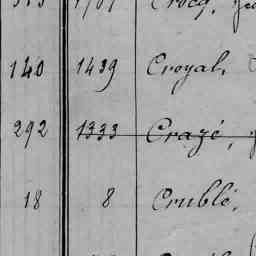 140 1439 Croyal,
292 1333 Crazé,
18 8 Crublé,